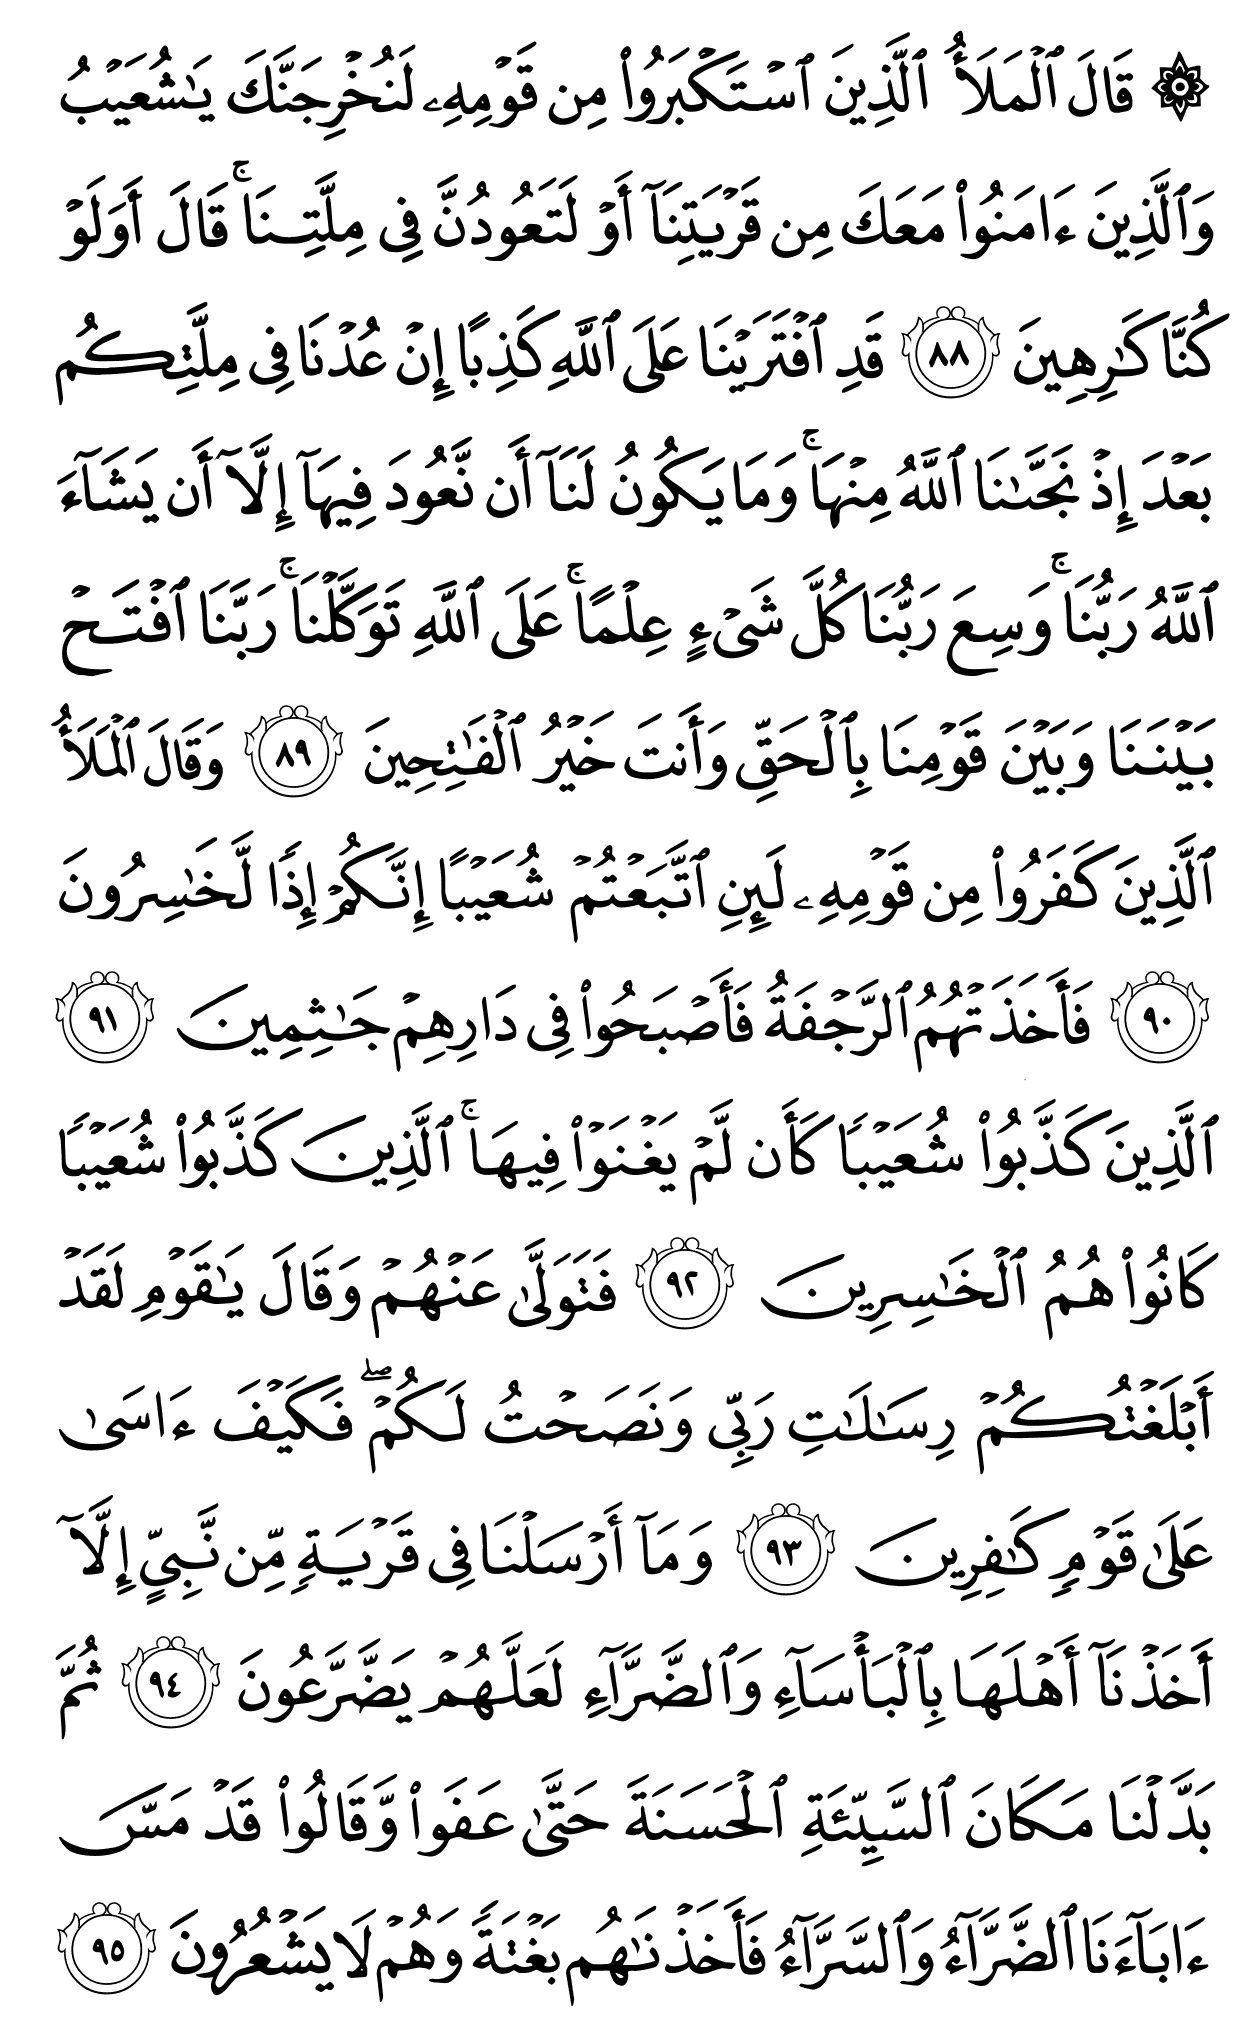 ۞ قَالَ ٱلْمَلَأُ ٱلَّذِينَ ٱسْتَكْبَرُوا۟ مِن قَوْمِهِۦ لَنُخْرِجَنَّكَ يَـٰشُعَيْبُ
وَٱلَّذِينَ ءَامَنُوا۟ مَعَكَ مِن قَرْيَتِنَآ أَوْ لَتَعُودُنَّ فِى مِلَّتِنَا ۚ قَالَ أَوَلَوْ
كُنَّا كَـٰرِهِينَ ٨٨ قَدِ ٱفْتَرَيْنَا عَلَى ٱللَّهِ كَذِبًا إِنْ عُدْنَا فِى مِلَّتِكُم
بَعْدَ إِذْ نَجَّىٰنَا ٱللَّهُ مِنْهَا ۚ وَمَا يَكُونُ لَنَآ أَن نَّعُودَ فِيهَآ إِلَّآ أَن يَشَآءَ
ٱللَّهُ رَبُّنَا ۚ وَسِعَ رَبُّنَا كُلَّ شَىْءٍ عِلْمًا ۚ عَلَى ٱللَّهِ تَوَكَّلْنَا ۚ رَبَّنَا ٱفْتَحْ
بَيْنَنَا وَبَيْنَ قَوْمِنَا بِٱلْحَقِّ وَأَنتَ خَيْرُ ٱلْفَـٰتِحِينَ ٨٩ وَقَالَ ٱلْمَلَأُ
ٱلَّذِينَ كَفَرُوا۟ مِن قَوْمِهِۦ لَئِنِ ٱتَّبَعْتُمْ شُعَيْبًا إِنَّكُمْ إِذًا لَّخَـٰسِرُونَ
٩٠ فَأَخَذَتْهُمُ ٱلرَّجْفَةُ فَأَصْبَحُوا۟ فِى دَارِهِمْ جَـٰثِمِينَ ٩١
ٱلَّذِينَ كَذَّبُوا۟ شُعَيْبًا كَأَن لَّمْ يَغْنَوْا۟ فِيهَا ۚ ٱلَّذِينَ كَذَّبُوا۟ شُعَيْبًا
كَانُوا۟ هُمُ ٱلْخَـٰسِرِينَ ٩٢ فَتَوَلَّىٰ عَنْهُمْ وَقَالَ يَـٰقَوْمِ لَقَدْ
أَبْلَغْتُكُمْ رِسَـٰلَـٰتِ رَبِّى وَنَصَحْتُ لَكُمْ ۖ فَكَيْفَ ءَاسَىٰ
عَلَىٰ قَوْمٍ كَـٰفِرِينَ ٩٣ وَمَآ أَرْسَلْنَا فِى قَرْيَةٍ مِّن نَّبِىٍّ إِلَّآ
أَخَذْنَآ أَهْلَهَا بِٱلْبَأْسَآءِ وَٱلضَّرَّآءِ لَعَلَّهُمْ يَضَّرَّعُونَ ٩٤ ثُمَّ
بَدَّلْنَا مَكَانَ ٱلسَّيِّئَةِ ٱلْحَسَنَةَ حَتَّىٰ عَفَوا۟ وَّقَالُوا۟ قَدْ مَسَّ
ءَابَآءَنَا ٱلضَّرَّآءُ وَٱلسَّرَّآءُ فَأَخَذْنَـٰهُم بَغْتَةً وَهُمْ لَا يَشْعُرُونَ ٩٥